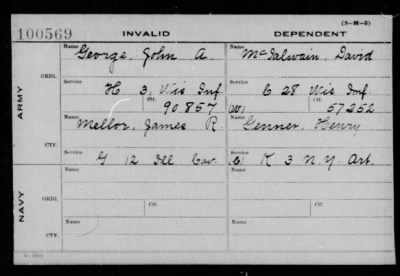 (3-H-5)
100569 INVALID DEPENDENT
Name George, John A. Name McIalwain, David
ORIG.
ARMY
Service H 3, Wis Inf. Service C 28 Wis Inf.
Ctf. 90857 (W) Ctf. 57252
Name Mellor, James R. Name Genner, Henry
CTF.
Service G 12 Ill Cav. Service K 3 N.Y. Art.
NAVY
ORIG. Name Ctf. Name Ctf.
CTF. Name Name